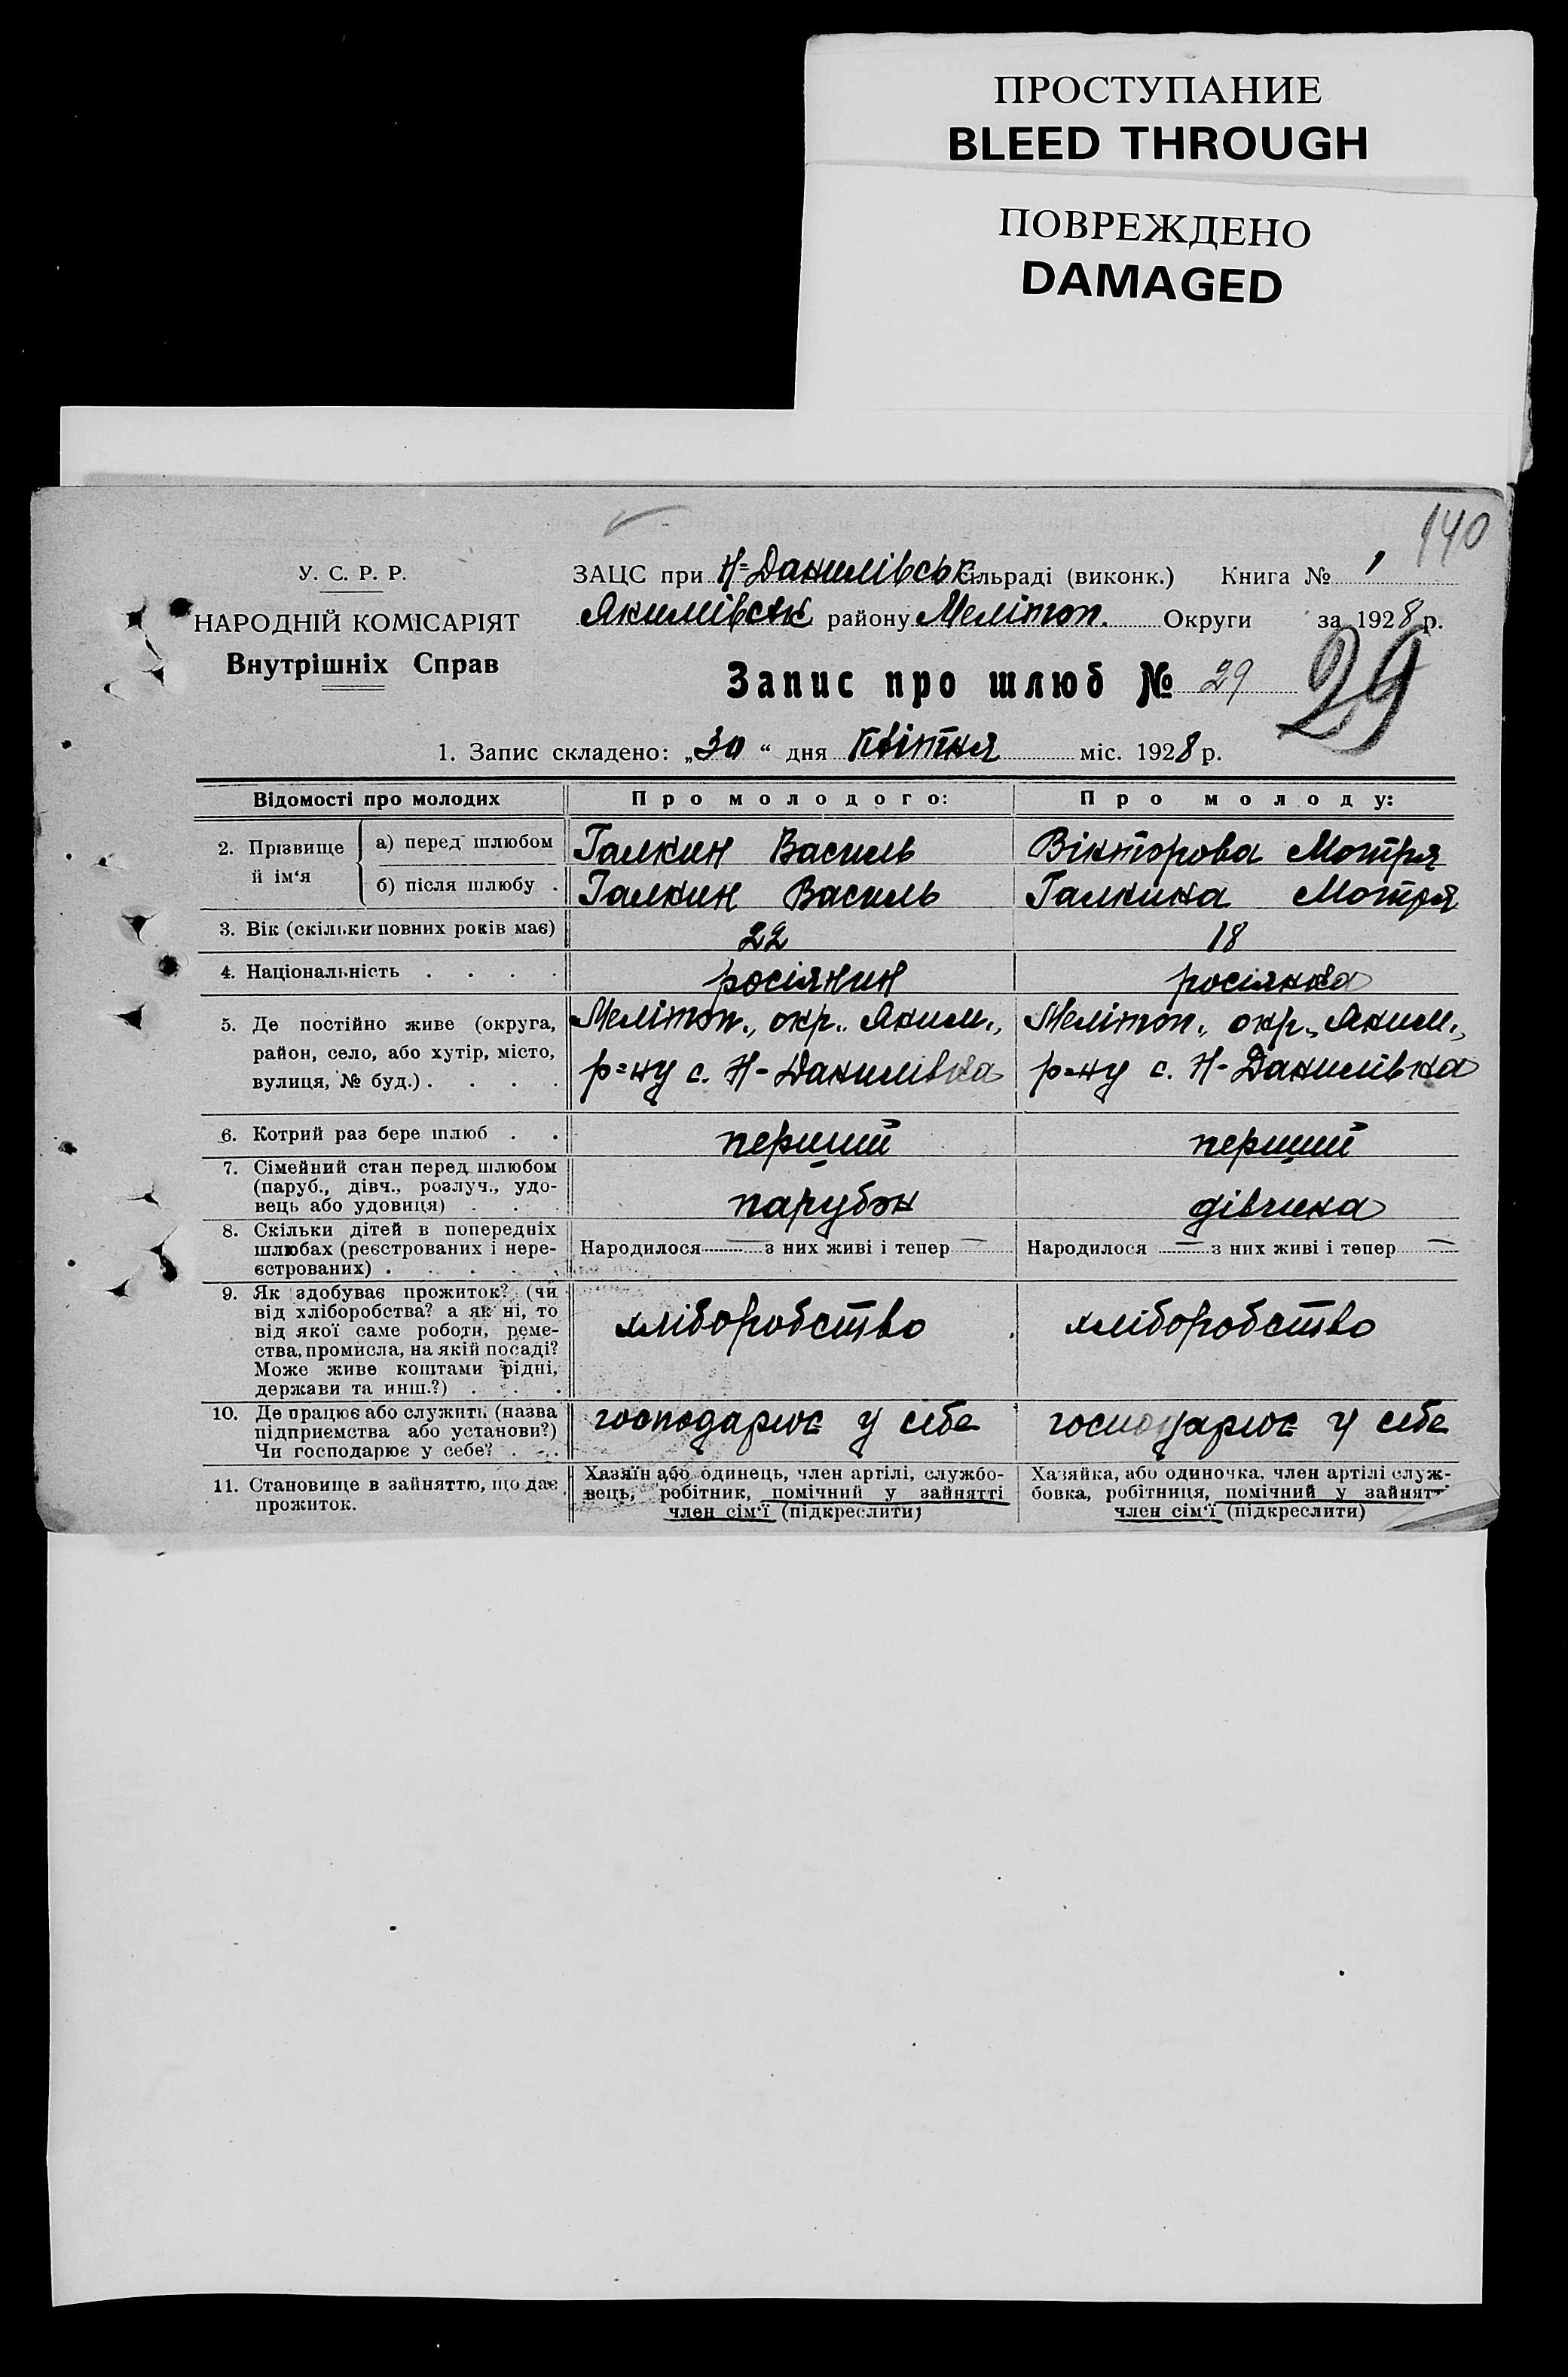 ПРОСТУПАНИЕ
BLEED THROUGH
ПОВРЕЖДЕНО
DAMAGED
140
У. С. Р. Р.
НАРОДНІЙ КОМІСАРІЯТ
Внутрішніх Справ
ЗАЦС при Н-Данилівськ сільраді (виконк.) Книга № 1
Якимівськ району Мелітоп. Округи за 1928 р.
Запис про шлюб № 29 29
1. Запис складено: „30“ дня Квітня міс. 1928 р.
Відомості про молодих Про молодого: Про молоду:
2. Прізвище й ім‘я
а) перед шлюбом Галкин Василь Вікторова Мотря
б) після шлюбу . Галкин Василь Галкина Мотря
3. Вік (скільки повних років має) 22 18
4. Національність . . . . росіянин росіянка
5. Де постійно живе (округа, Мелітоп., окр., Яким., Мелітоп., окр., Яким.,
район, село, або хутір, місто, р=ну с. Н-Данилівка р-ну с. Н-Данилівка
вулиця, № буд.) . . . .
6. Котрий раз бере шлюб . . перший перший
7. Сімейний стан перед шлюбом
(паруб., дівч., розлуч., удо-
вець або удовиця) . . . парубок дівчина
8. Скільки дітей в попередніх
шлюбах (реєстрованих і нере- Народилося — з них живі і тепер — Народилося — з них живі і тепер —
єстрованих) . . . . .
9. Як здобуває прожиток? (чи
від хліборобства? а як ні, то
від якої саме роботи, реме- хліборобство хліборобство
ства, промисла, на якій посаді?
Може живе коштами рідні,
держави та инш.?) . . .
10. Де працює або служить (назва господарює у себе господарює у себе
підприємства або установи?)
Чи господарює у себе? . . .
11. Становище в зайняттю, що дає
прожиток.
Хазяїн або одинець, член артілі, службо-
вець, робітник, помічний у зайнятті
член сім‘ї (підкреслити)
Хазяйка, або одиночка, член артілі служ-
бовка, робітниця, помічний у зайнятті
член сім‘ї (підкреслити)